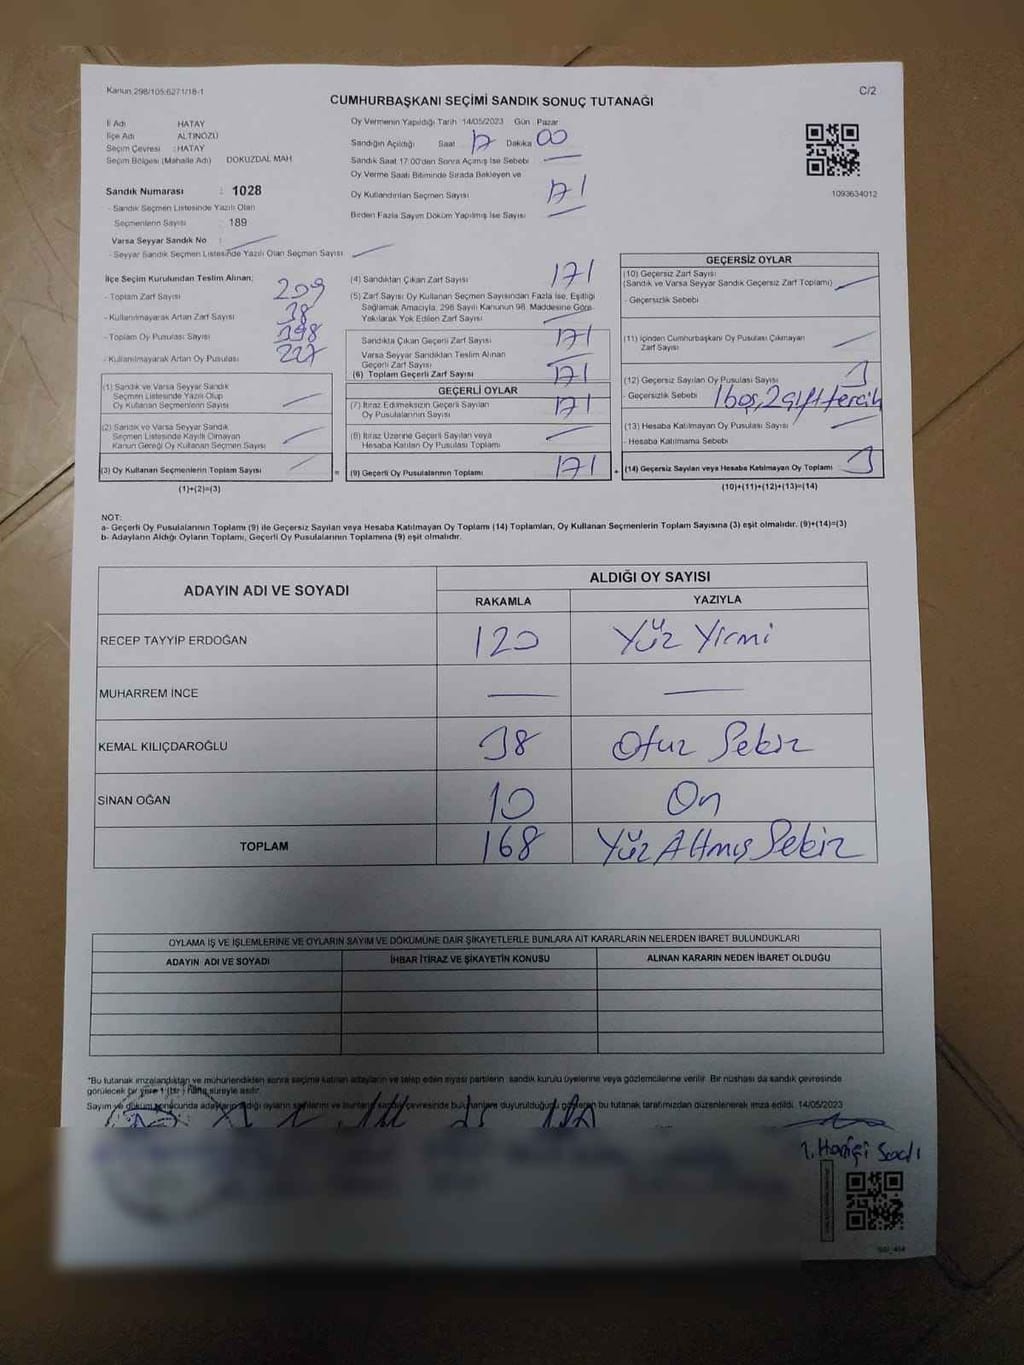 Kanun 298/105:6271/18-1
C/2
CUMHURBAŞKANI SEÇİMİ SANDIK SONUÇ TUTANAĞI
İl Adı HATAY
İlçe Adı ALTINÖZÜ
Seçim Çevresi : HATAY
Seçim Bölgesi (Mahalle Adı) DOKUZDAL MAH
Sandık Numarası : 1028
- Sandık Seçmen Listesinde Yazılı Olan
Seçmenlerin Sayısı : 189
Varsa Seyyar Sandık No :
- Seyyar Sandık Seçmen Listesinde Yazılı Olan Seçmen Sayısı
Oy Vermenin Yapıldığı Tarih 14/05/2023 Gün Pazar
Sandığın Açıldığı Saat 17 Dakika 00
Sandık Saat 17.00'den Sonra Açılmış İse Sebebi
Oy Verme Saati Bitiminde Sırada Bekleyen ve
Oy Kullandırılan Seçmen Sayısı 171
Birden Fazla Sayım Döküm Yapılmış İse Sayısı
1093634012
İlçe Seçim Kurulundan Teslim Alınan;
- Toplam Zarf Sayısı 209
- Kullanılmayarak Artan Zarf Sayısı 38
- Toplam Oy Pusulası Sayısı 398
- Kullanılmayarak Artan Oy Pusulası 227
(1) Sandık ve Varsa Seyyar Sandık
Seçmen Listesinde Yazılı Olup
Oy Kullanan Seçmenlerin Sayısı
(2) Sandık ve Varsa Seyyar Sandık
Seçmen Listesinde Kayıtlı Olmayan
Kanun Gereği Oy Kullanan Seçmen Sayısı
(3) Oy Kullanan Seçmenlerin Toplam Sayısı
(1)+(2)=(3)
(4) Sandıktan Çıkan Zarf Sayısı 171
(5) Zarf Sayısı Oy Kullanan Seçmen Sayısından Fazla İse, Eşitliği
Sağlamak Amacıyla, 298 Sayılı Kanunun 98. Maddesine Göre
Yakılarak Yok Edilen Zarf Sayısı
Sandıkta Çıkan Geçerli Zarf Sayısı 171
Varsa Seyyar Sandıktan Teslim Alınan
Geçerli Zarf Sayısı
(6) Toplam Geçerli Zarf Sayısı 171
GEÇERLİ OYLAR
(7) İtiraz Edilmeksizin Geçerli Sayılan
Oy Pusulalarının Sayısı 171
(8) İtiraz Üzerine Geçerli Sayılan veya
Hesaba Katılan Oy Pusulası Toplamı
= (9) Geçerli Oy Pusulalarının Toplamı 171
GEÇERSİZ OYLAR
(10) Geçersiz Zarf Sayısı
(Sandık ve Varsa Seyyar Sandık Geçersiz Zarf Toplamı)
- Geçersizlik Sebebi
(11) İçinden Cumhurbaşkanı Oy Pusulası Çıkmayan
Zarf Sayısı
(12) Geçersiz Sayılan Oy Pusulası Sayısı 3
- Geçersizlik Sebebi 1 boş, 2 çift tercih
(13) Hesaba Katılmayan Oy Pusulası Sayısı
- Hesaba Katılmama Sebebi
+ (14) Geçersiz Sayılan veya Hesaba Katılmayan Oy Toplamı 3
(10)+(11)+(12)+(13)=(14)
NOT:
a- Geçerli Oy Pusulalarının Toplamı (9) ile Geçersiz Sayılan veya Hesaba Katılmayan Oy Toplamı (14) Toplamları, Oy Kullanan Seçmenlerin Toplam Sayısına (3) eşit olmalıdır. (9)+(14)=(3)
b- Adayların Aldığı Oyların Toplamı, Geçerli Oy Pusulalarının Toplamına (9) eşit olmalıdır.
ADAYIN ADI VE SOYADI ALDIĞI OY SAYISI
RAKAMLA YAZIYLA
RECEP TAYYİP ERDOĞAN 120 Yüz Yirmi
MUHARREM İNCE
KEMAL KILIÇDAROĞLU 38 Otuz Sekiz
SİNAN OĞAN 10 On
TOPLAM 168 Yüz Altmış Sekiz
OYLAMA İŞ VE İŞLEMLERİNE VE OYLARIN SAYIM VE DÖKÜMÜNE DAİR ŞİKAYETLERLE BUNLARA AİT KARARLARIN NELERDEN İBARET BULUNDUKLARI
ADAYIN ADI VE SOYADI İHBAR İTİRAZ VE ŞİKAYETİN KONUSU ALINAN KARARIN NEDEN İBARET OLDUĞU
*Bu tutanak imzalandıktan ve mühürlendikten sonra seçime katılan adayların ve talep eden siyasi partilerin sandık kurulu üyelerine veya gözlemcilerine verilir. Bir nüshası da sandık çevresinde
görülecek bir yere 1 (bir) hafta süreyle asılır.
Sayım ve döküm sonucunda adayların aldığı oyların sayılarını ve bunların sandık çevresinde bulunanlara duyurulduğunu gösteren bu tutanak tarafımızdan düzenlenerek imza edildi. 14/05/2023